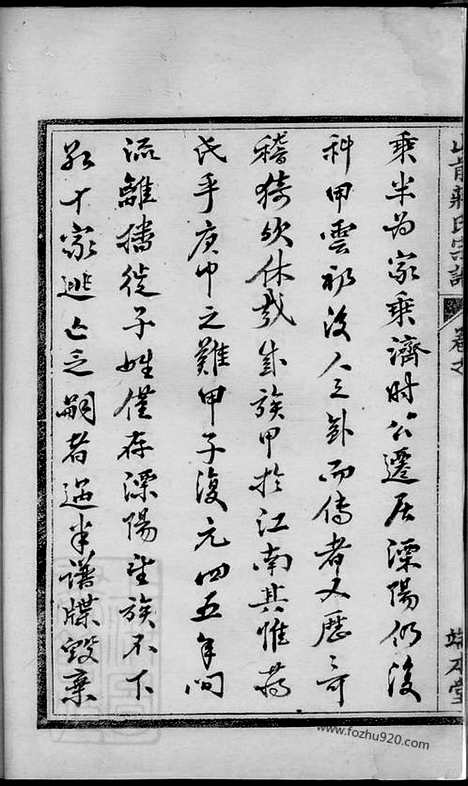 山前蔣氏宗譜 卷之
端本堂
乘半为家乘濟时公遷居溧陽仍後
科甲雲礽後人之卦而傳者又歷之可
稽猗欤休哉盛族甲於江南其惟蒋
氏乎庚申之難甲子復元四五年间
流離播徙子姓僅存溧陽望族不下
数十家逃亡乏嗣者过半譜牒毀棄
www.fozhu920.com